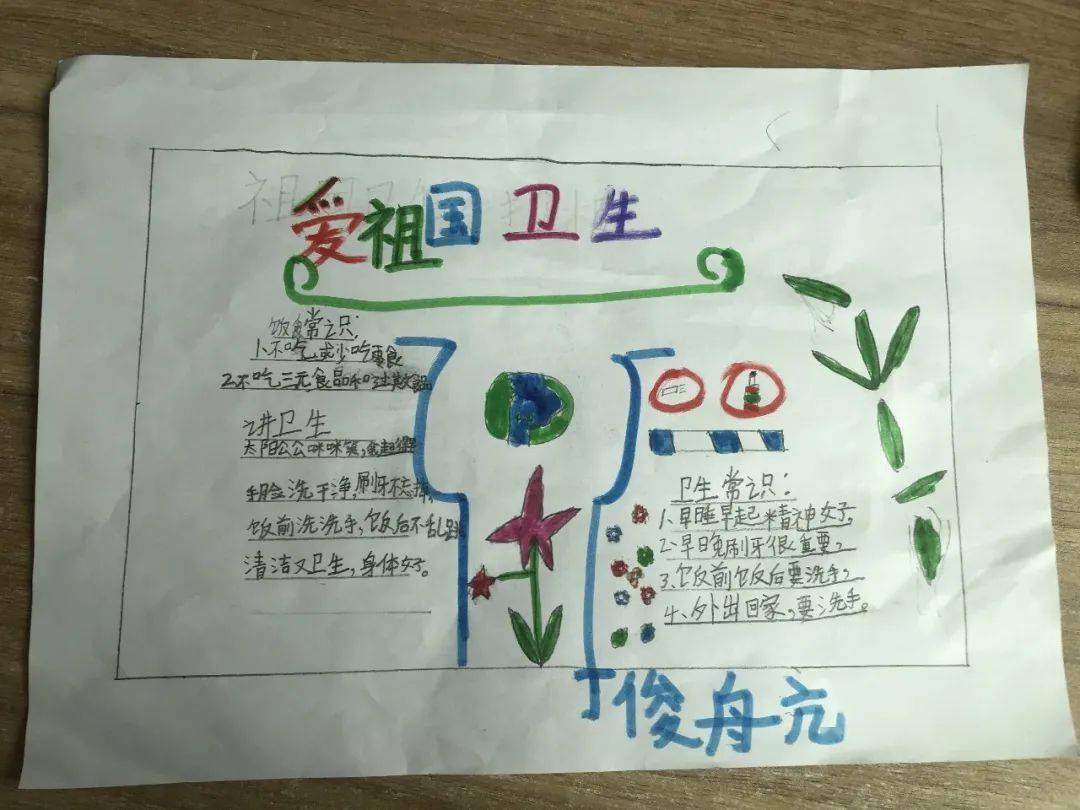 爱祖国卫生
饮食常识:
1、不吃或少吃零食
2、不吃三元食品和
讲卫生
太阳公公咪咪笑,
手脸洗干净,刷牙不忘掉,
饭前洗洗手,饭后不乱跑
清洁又卫生,身体好。
卫生常识:
1、早睡早起精神好,
2、早晚刷牙很重要,
3、饭前饭后要洗手,
4、外出回家,要洗手。
丁俊舟亢